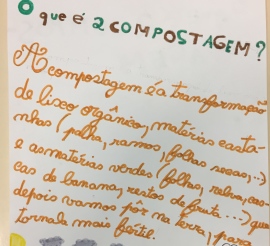 O que é a COMPOSTAGEM?
A compostagem é a transformação
de lixo orgânico, matérias casta-
nhas (palha, ramos, folhas secas,...)
e as matérias verdes (folhas, relva, cas-
cas de banana, restos de fruta...) que
depois vamos pôr na terra, para
torná-la mais fértil.